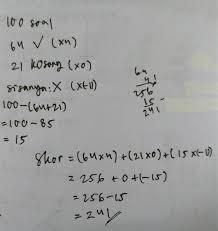 100 soal
64 ✓ (x4)
21 kosong (x0)
sisanya: X (x-1)
100-(64+21)
=100-85
=15
64
4
256
15
241
Skor = (64x4)+(21x0)+(15x-1)
= 256+0+(-15)
= 256-15
= 241